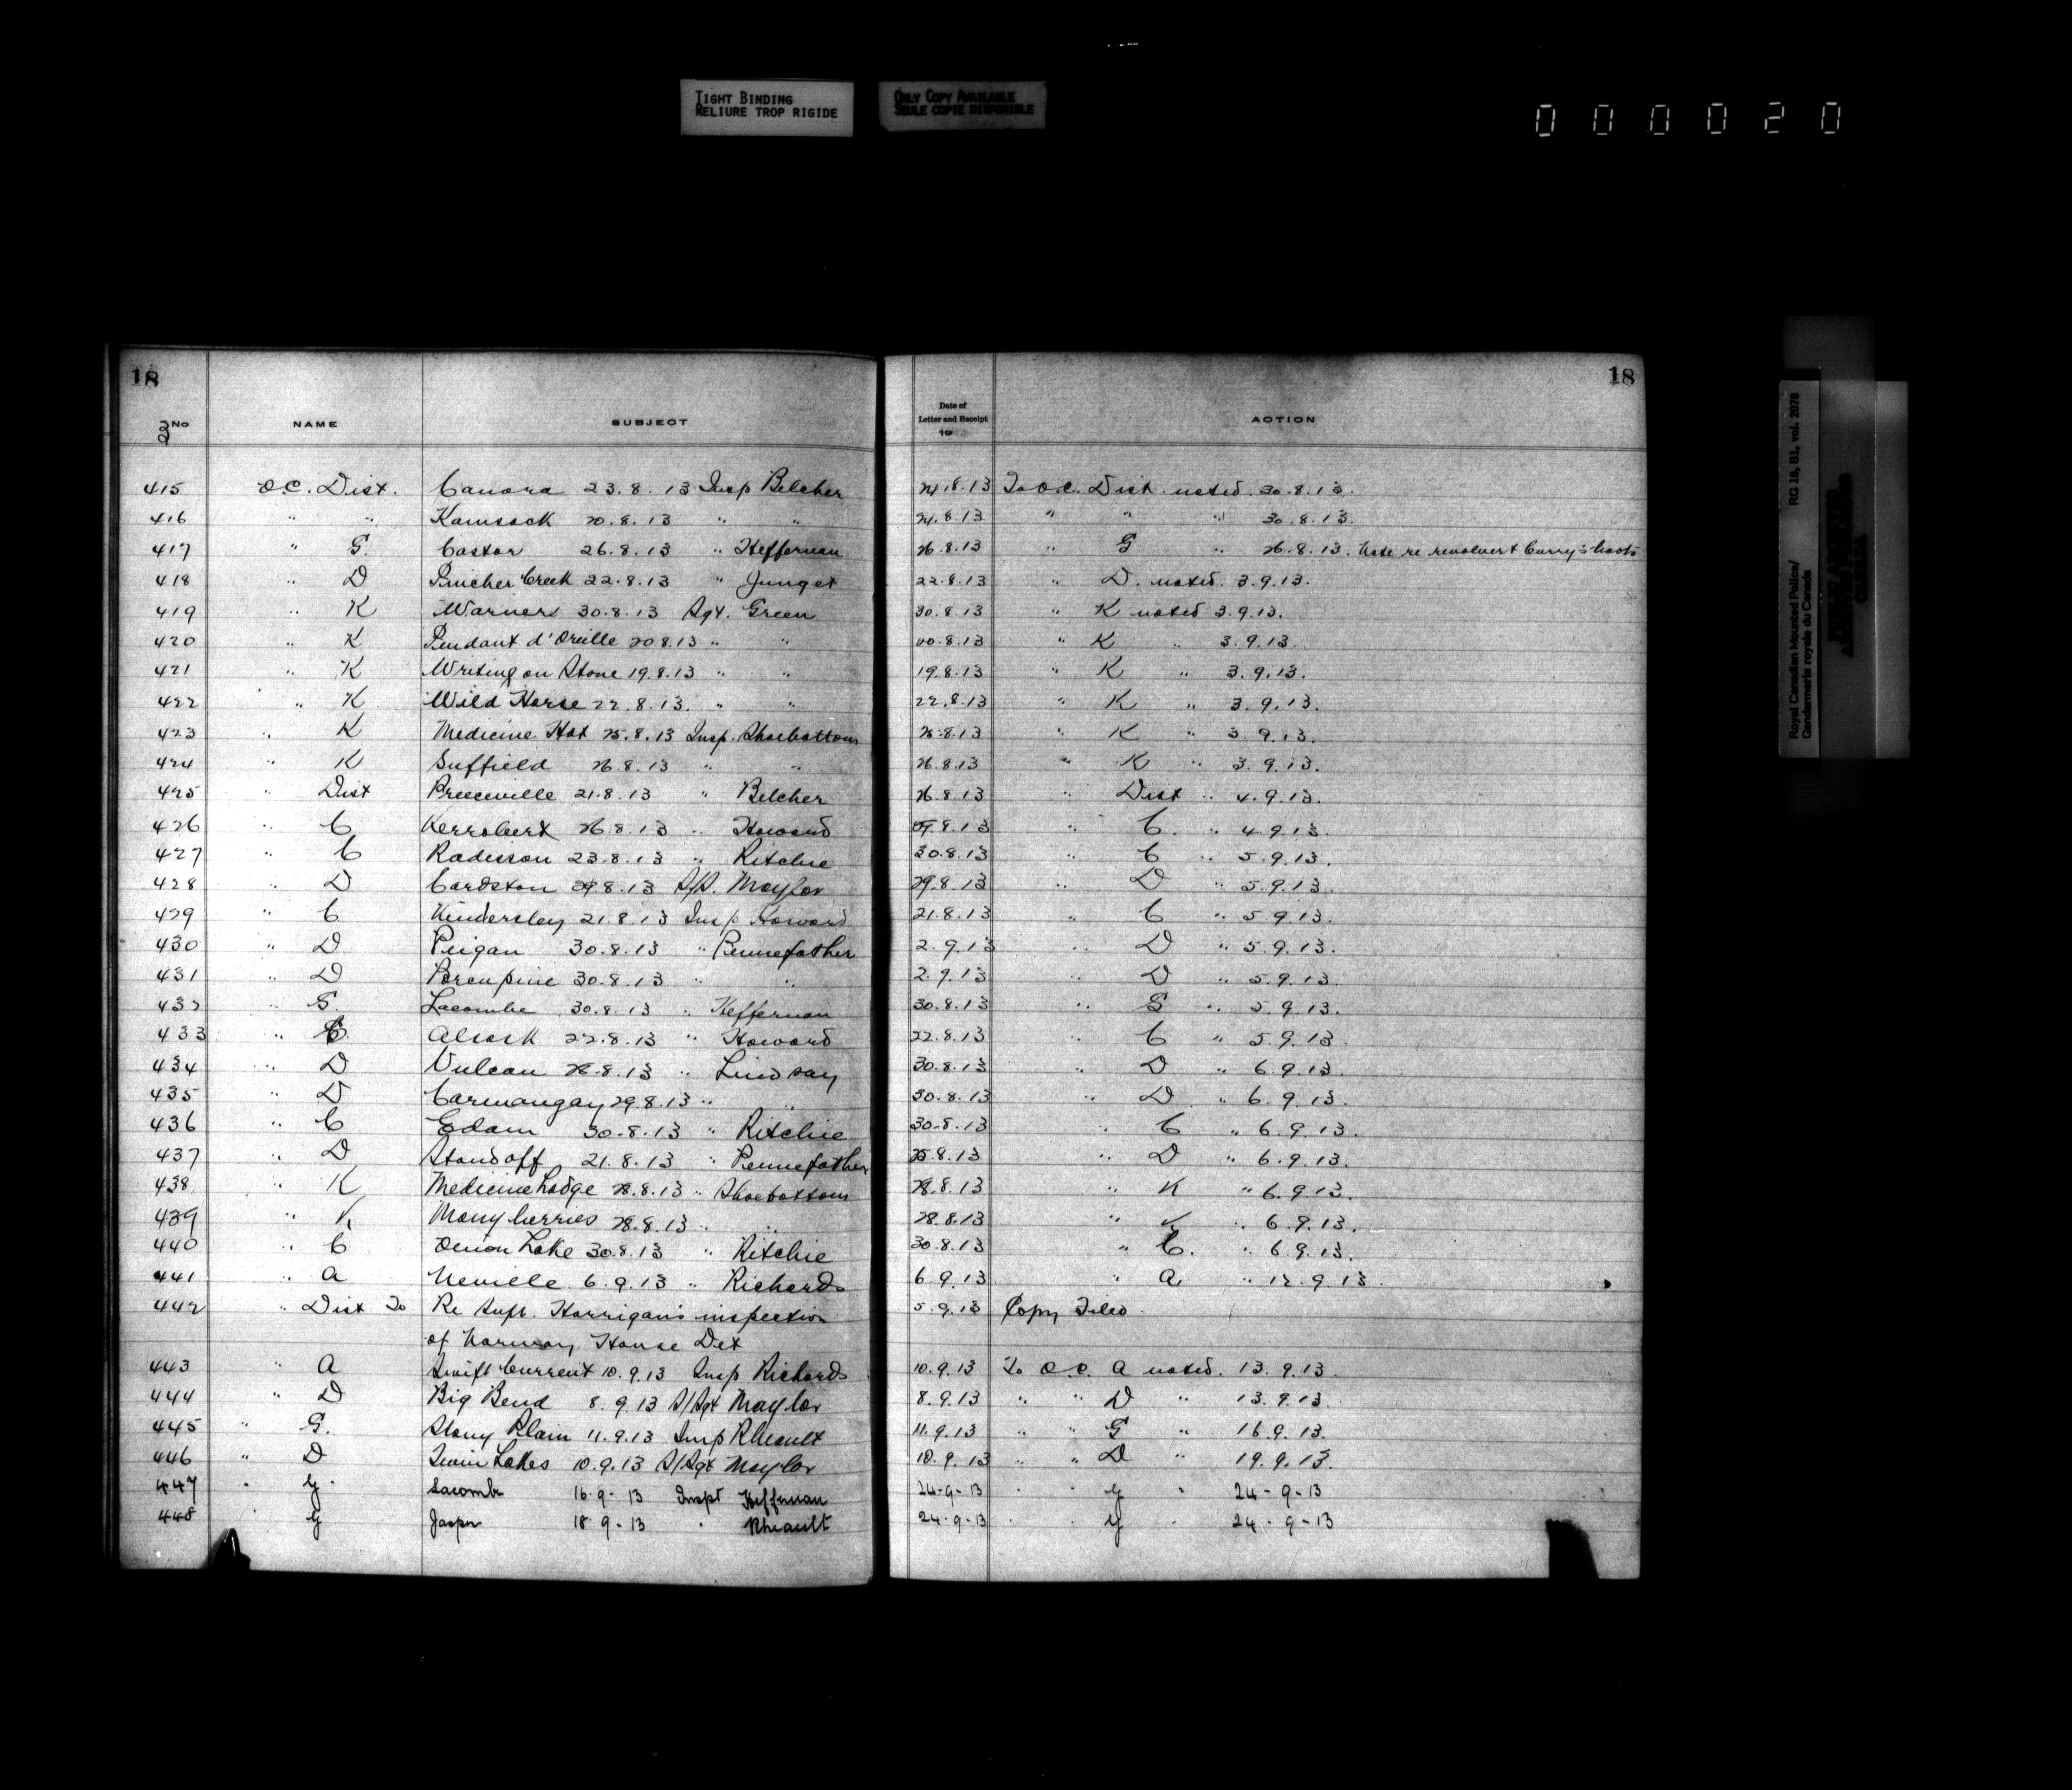 TIGHT BINDING
RELIURE TROP RIGIDE
ONLY COPY AVAILABLE
SEULE COPIE DISPONIBLE
000020
18 18
3 No NAME SUBJECT Date of Letter and Receipt 19 ACTION
415 O.C. Dist. Canora 23.8.13 Insp Belcher 24.8.13 To O.C. Dist noted 30.8.13.
416 " " Kamsack 20.8.13 " " 24.8.13 " " " 30.8.13.
417 " G. Castor 26.8.13 " Heffernan 26.8.13 " G " 26.8.13. Note re revolver & Curry's boots
418 " D Pincher Creek 22.8.13 " Junget 22.8.13 " D. noted 3.9.13.
419 " K Warner 30.8.13 Sgt. Green 30.8.13 " K noted 3.9.13.
420 " K Pendant d'Oreille 20.8.13 " " 20.8.13 " K " 3.9.13.
421 " K Writing on Stone 19.8.13 " " 19.8.13 " K " 3.9.13.
422 " K Wild Horse 22.8.13. " " 22.8.13 " K " 3.9.13.
423 " K Medicine Hat 25.8.13 Insp. Shoebottom 25.8.13 " K " 3.9.13.
424 " K Suffield 26.8.13 " " 26.8.13 " K " 3.9.13.
425 " Dist Preeceville 21.8.13 " Belcher 26.8.13 " Dist " 4.9.13.
426 " C Kerrobert 26.8.13 " Howard 29.8.13 " C. " 4.9.13.
427 " C Radisson 23.8.13 " Ritchie 30.8.13 " C " 5.9.13.
428 " D Cardston 29.8.13 S/S. Maylor 29.8.13 " D " 5.9.13.
429 " C Kindersley 21.8.13 Insp Howard 21.8.13 " C " 5.9.13.
430 " D Peigan 30.8.13 " Pennefather 2.9.13 " D " 5.9.13.
431 " D Porcupine 30.8.13 " " 2.9.13 " D " 5.9.13.
432 " G Lacombe 30.8.13 " Heffernan 30.8.13 " G " 5.9.13.
433 " C Alsask 22.8.13 " Howard 22.8.13 " C " 5.9.13.
434 " D Vulcan 28.8.13 " Lindsay 30.8.13 " D " 6.9.13.
435 " D Carmangay 29.8.13 " " 30.8.13 " D " 6.9.13.
436 " C Edam 30.8.13 " Ritchie 30.8.13 " C " 6.9.13.
437 " D Standoff 21.8.13 " Pennefather 25.8.13 " D " 6.9.13.
438 " K Medicine Lodge 28.8.13 " Shoebottom 28.8.13 " K " 6.9.13.
439 " K Manyberries 28.8.13 " " 28.8.13 " K " 6.9.13.
440 " C Onion Lake 30.8.13 " Ritchie 30.8.13 " C. " 6.9.13.
441 " A Neville 6.9.13 " Richards 6.9.13 " A, " 12.9.13.
442 " Dist To Re Supt. Horrigan's inspection 5.9.13 Copy Filed.
of Norway House Det
443 " A Swift Current 10.9.13 Insp Richards 10.9.13 To O.C. A noted. 13.9.13.
444 " D Big Bend 8.9.13 S/Sgt Maylor 8.9.13 " " D " 13.9.13.
445 " G. Stony Plain 11.9.13 Insp Rheault 11.9.13 " " G " 16.9.13.
446 " D Twin Lakes 10.9.13 S/Sgt Maylor 10.9.13 " " D " 19.9.13.
447 " G Lacombe 16-9-13 Inspt Heffernan 24-9-13 " " G " 24-9-13
448 " G Jasper 18-9-13 " Rheault 24-9-13 " " G " 24-9-13
Royal Canadian Mounted Police/ RG 18, B1, vol. 2078
Gendarmerie royale du Canada